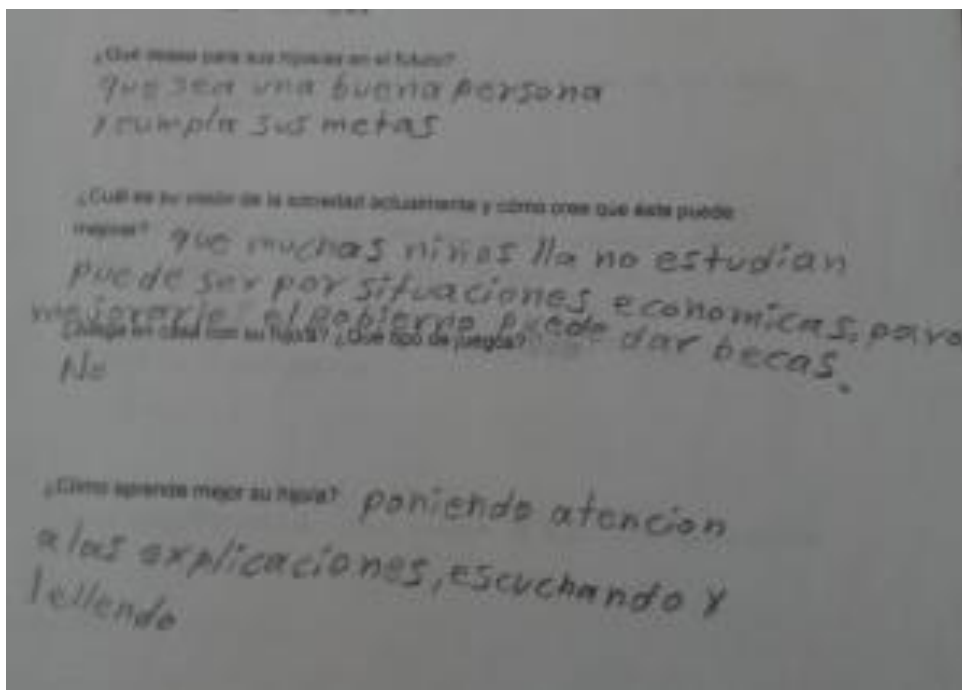 ¿Qué desea para sus hijos/as en el futuro?
que sea una buena persona
y cumpla sus metas
¿Cuál es su visión de la sociedad actualmente y cómo cree que ésta puede
mejorar? que muchas niños lla no estudian
puede ser por situaciones economicas, para
mejorarlo el gobierno puede dar becas.
¿Juega en casa con su hijo/a? ¿Qué tipo de juegos?
No
¿Cómo aprende mejor su hijo/a? poniendo atencion
a las explicaciones, escuchando y
lellendo